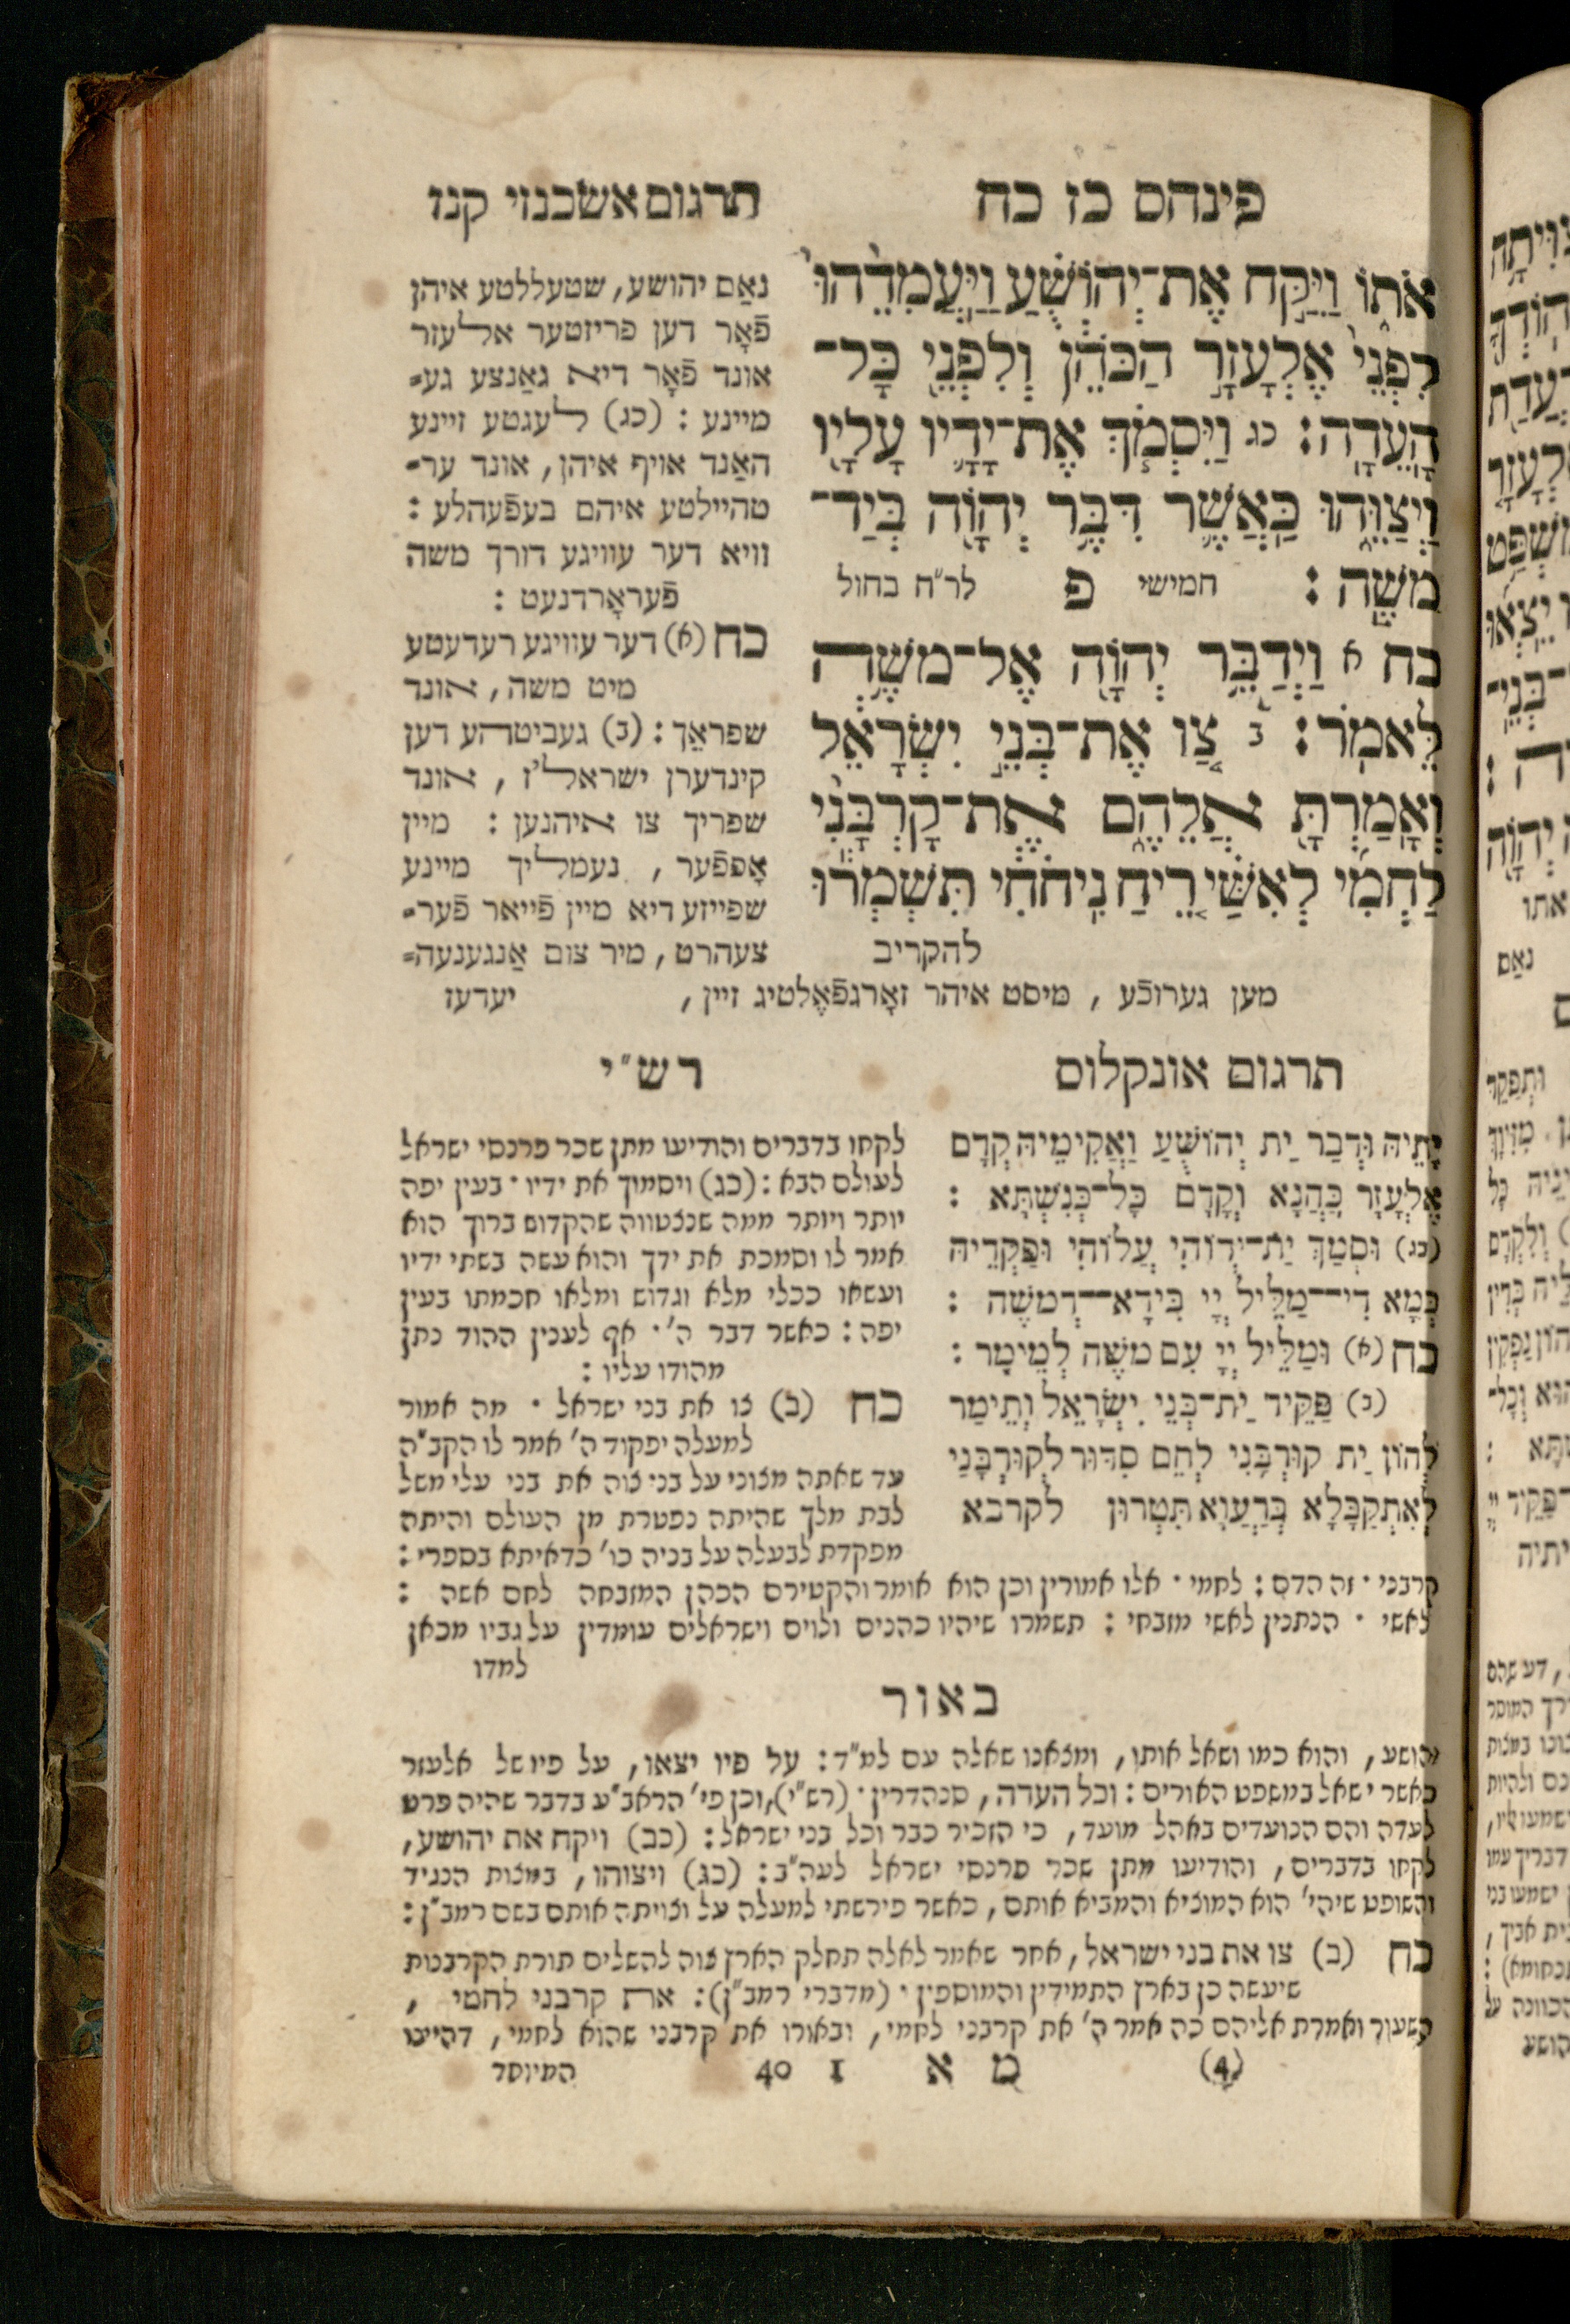 פינחס כז כח
אֹתוֹ וַיִּקַּח אֶת־יְהוֹשֻׁעַ וַיַּעֲמִדֵהוּ
לִפְנֵי אֶלְעָזָר הַכֹּהֵן וְלִפְנֵי כָּל־
הָעֵדָה: כג וַיִּסְמֹךְ אֶת־יָדָיו עָלָיו
וַיְצַוֵּהוּ כַּאֲשֶׁר דִּבֶּר יְהוָֹה בְּיַד־
משֶׁה: חמישי פ לר״ח בחול
כח א וַיְדַבֵּר יְהוָֹה אֶל־משֶׁה
לֵּאמֹר: ב צַו אֶת־בְּנֵי יִשְׂרָאֵל
וְאָמַרְתָּ אֲלֵהֶם אֶת־קָרְבָּנִי
לַחְמִי לְאִשַּׁי רֵיחַ נִיחֹחִי תִּשְׁמְרוּ
להקריב
תרגום אשכנזי קנז
נאַם יהושע, שטעללטע איהן
פֿאָר דען פריזטער אלעזר
אונד פֿאָר דיא גאַנצע גע=
מיינע: (כג) לעגטע זיינע
האַנד אויף איהן, אונד ער=
טהיילטע איהם בעפֿעהלע:
וויא דער עוויגע דורך משה
פֿעראָרדנעט:
כח (א) דער עוויגע רעדעטע
מיט משה, אונד
שפראַך: (ב) געביטהע דען
קינדערן ישראל'ז, אונד
שפריך צו איהנען: מיין
אָפפֿער, נעמליך מיינע
שפייזע דיא מיין פֿייאר פֿער=
צעהרט, מיר צום אַנגענעה=
מען גערוכֿע, מיסט איהר זאָרגפֿאֶלטיג זיין, יעדעז
תרגום אונקלוס
יָתֵיהּ וּדְבַר יַת יְהוֹשֻׁעַ וַאֲקִימֵיהּ קְדָם
אֶלְעָזָר כַּהֲנָא וָקֳדָם כָּל־כְּנִשְׁתָּא:
(כג) וּסְמַךְ יַת־יְדוֹהִי עֲלוֹהִי וּפַקְּדֵיהּ
כְּמָא דִי־מַלִּיל יְיָ בִּידָא־דְמשֶׁה:
כח (א) וּמַלֵּיל יְיָ עִם משֶׁה לְמֵימָר:
(ב) פַּקֵּיד יַת־בְּנֵי יִשְׂרָאֵל וְתֵימַר
לְהוֹן יַת קוּרְבָּנִי לְחֵם סִדּוּר לְקוּרְבָּנַי
לְאִתְקַבָּלָא בְּרַעֲוָא תִּטְּרוּן לקרבא
רש״י
לקחו בדברים והודיעו מתן שכר פרנסי ישראל
לעולם הבא: (כג) ויסמוך את ידיו · בעין יפה
יותר ויותר ממה שנצטווה שהקדוש ברוך הוא
אמר לו וסמכת את ידך והוא עשה בשתי ידיו
ועשאו ככלי מלא וגדוש ומלאו חכמתו בעין
יפה: כאשר דבר ה' · אף לענין ההוד נתן
מהודו עליו:
כח (ב) צו את בני ישראל · מה אמור
למעלה יפקוד ה' אמר לו הקב״ה
עד שאתה מצוני על בני צוה את בני עלי משל
לבת מלך שהיתה נפטרת מן העולם והיתה
מפקדת לבעלה על בניה כו' כדאיתא בספרי:
קרבני · זה הדם: לחמי · אלו אמורין וכן הוא אומר והקטירם הכהן המזבחה לחם אשה:
לאשי · הנתנין לאשי מזבחי: תשמרו שיהיו כהנים ולוים וישראלים עומדין על גביו מכאן
למדו
באור
יהושע, והוא כמו ושאל אותו, ומצאנו שאלה עם למ״ד: על פיו יצאו, על פיו של אלעזר
כאשר ישאל במשפט האורים: וכל העדה, סנהדרין · (רש״י), וכן פי' הראב״ע בדבר שהיה פרט
לעדה והם הנועדים באהל מועד, כי הזכיר כבר וכל בני ישראל: (כב) ויקח את יהושע,
לקחו בדברים, והודיעו מתן שכר פרנסי ישראל לעה״ב: (כג) ויצוהו, במצות הנגיד
והשופט שיהי' הוא המוציא והמביא אותם, כאשר פירשתי למעלה על וצויתה אותם בשם רמב״ן:
כח (ב) צו את בני ישראל, אחר שאמר לאלה תחלק הארץ צוה להשלים תורת הקרבנות
שיעשה כן בארץ התמידין והמוספין · (מדברי רמב״ן): את קרבני לחמי,
השעור ואמרת אליהם כה אמר ה' את קרבני לחמי, ובאורו את קרבני שהוא לחמי, דהיינו
(4) מ א 1 40 המיוסד